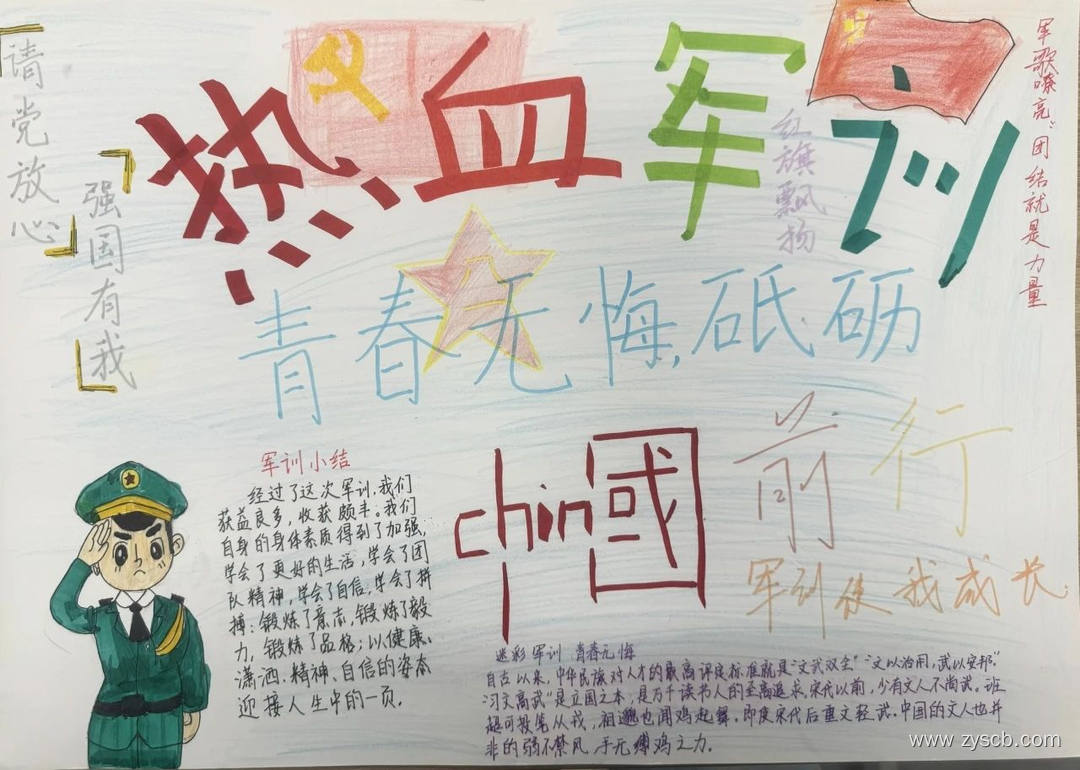 请党放心
强国有我
热血军训
红旗飘扬
军歌嘹亮:团结就是力量
青春无悔,砥砺
前行
chin國
军训使我成长
军训小结
经过了这次军训,我们
获益良多,收获颇丰。我们
自身的身体素质得到了加强,
学会了更好的生活,学会了团
队精神,学会了自信,学会了拼
搏;锻炼了意志,锻炼了毅
力,锻炼了品格;以健康、
潇洒、精神、自信的姿态
迎接人生中的一页.
迷彩军训 青春无悔
自古以来,中华民族对人才的最高评定标准就是“文武双全”“文以治国,武以安邦”.
“习文高武”是立国之本,是万千读书人的至高追求.宋代以前,少有文人不尚武。班
超可投笔从戎,祖逖也闻鸡起舞.即度宋代后重文轻武.中国的文人也并
非的弱不禁风,手无缚鸡之力.
www.zyscb.com